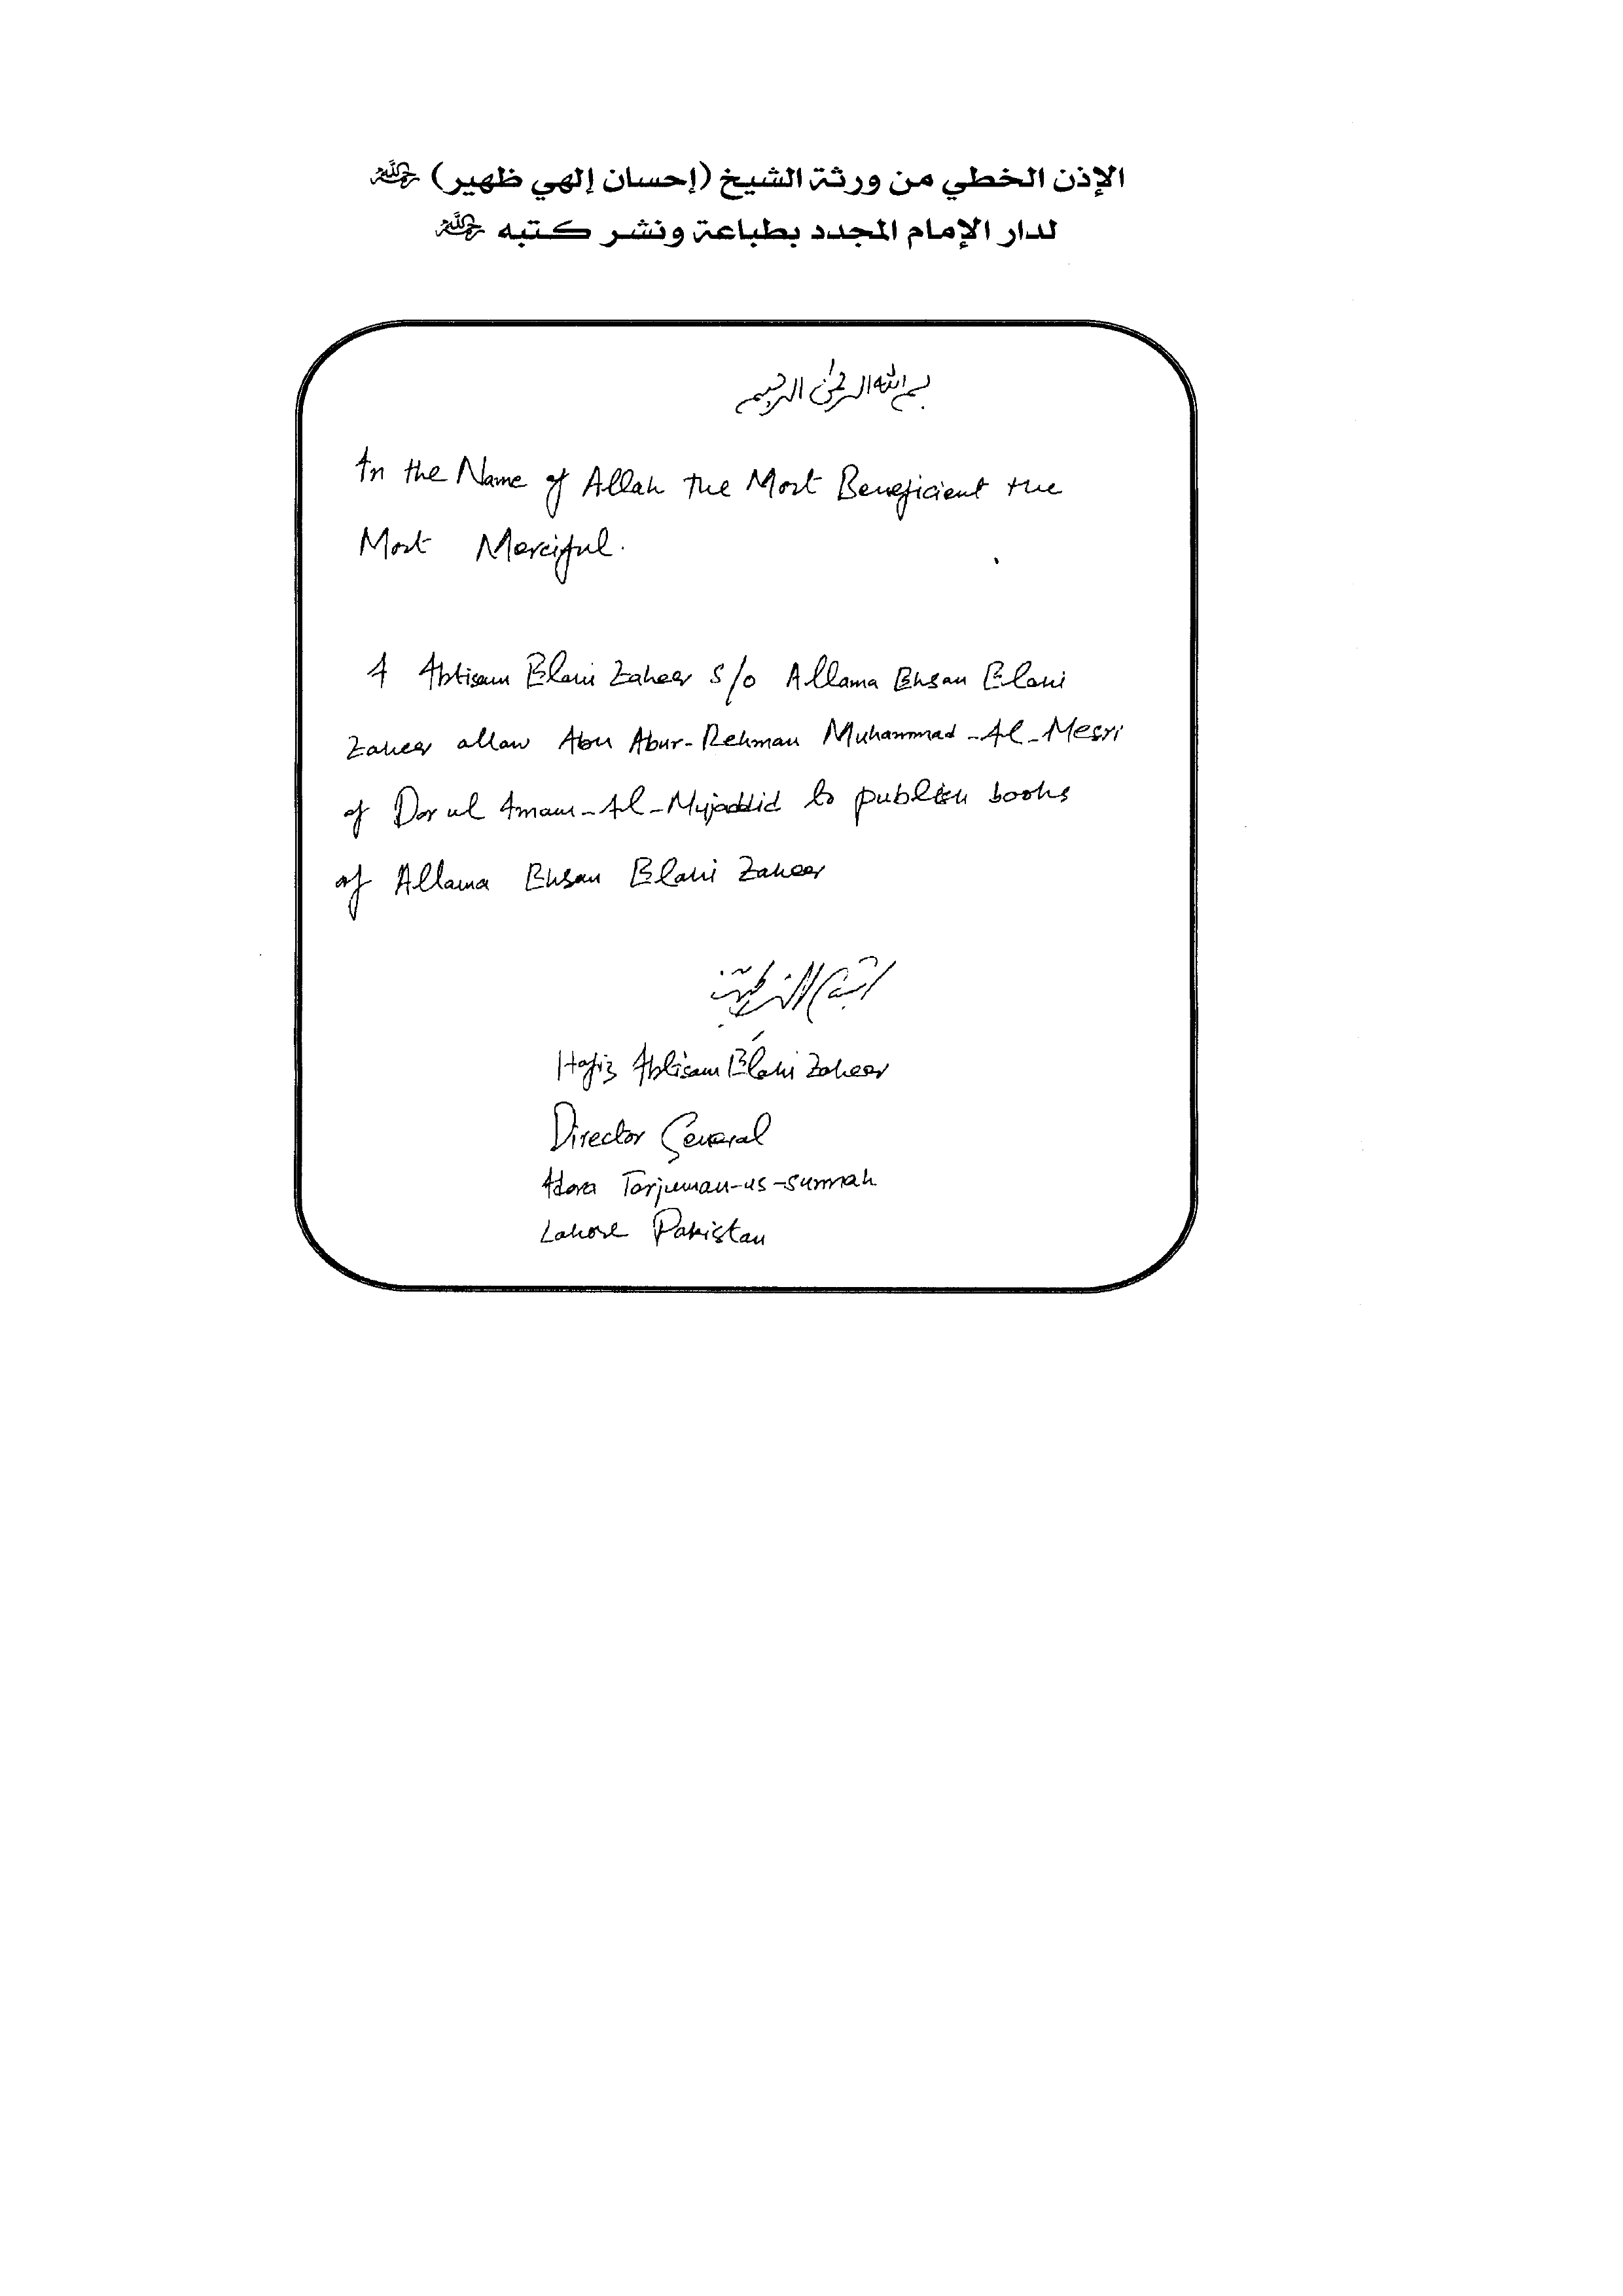 الإذن الخطي من ورثة الشيخ (إحسان إلهي ظهير) رحمه الله
لدار الإمام المجدد بطباعة ونشر كتبه رحمه الله
بسم الله الرحمن الرحيم
In the Name of Allah the Most Beneficient the
Most Merciful.
I Ibtisam Elahi Zaheer S/o Allama Ehsan Elahi
Zaheer allow Abu Abur-Rehman Muhammad-Al-Mesri
of Dar ul Imam-Al-Mujaddid to publish books
of Allama Ehsan Elahi Zaheer
Hafiz Ibtisam Elahi Zaheer
Director General
Idara Tarjuman-us-sunnah
Lahore Pakistan